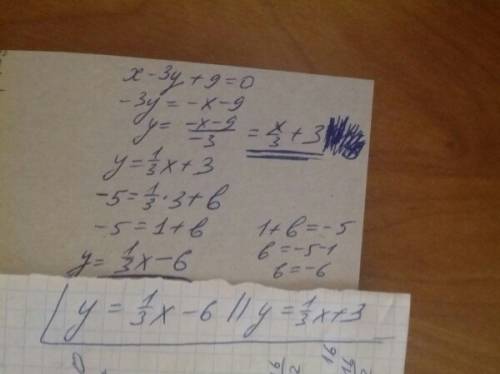 x - 3y + 9 = 0
-3y = -x - 9
y = (-x - 9)/(-3) = x/3 + 3
y = 1/3 x + 3
-5 = 1/3 · 3 + b
-5 = 1 + b
1 + b = -5
b = -5 - 1
b = -6
y = 1/3 x - 6
y = 1/3 x - 6 || y = 1/3 x + 3
16